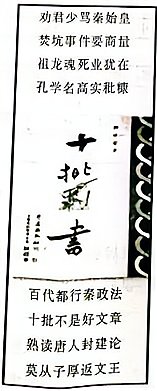 劝君少骂秦始皇
焚坑事件要商量
祖龙魂死业犹在
孔学名高实秕糠
十批判书
百代都行秦政法
十批不是好文章
熟读唐人封建论
莫从子厚返文王